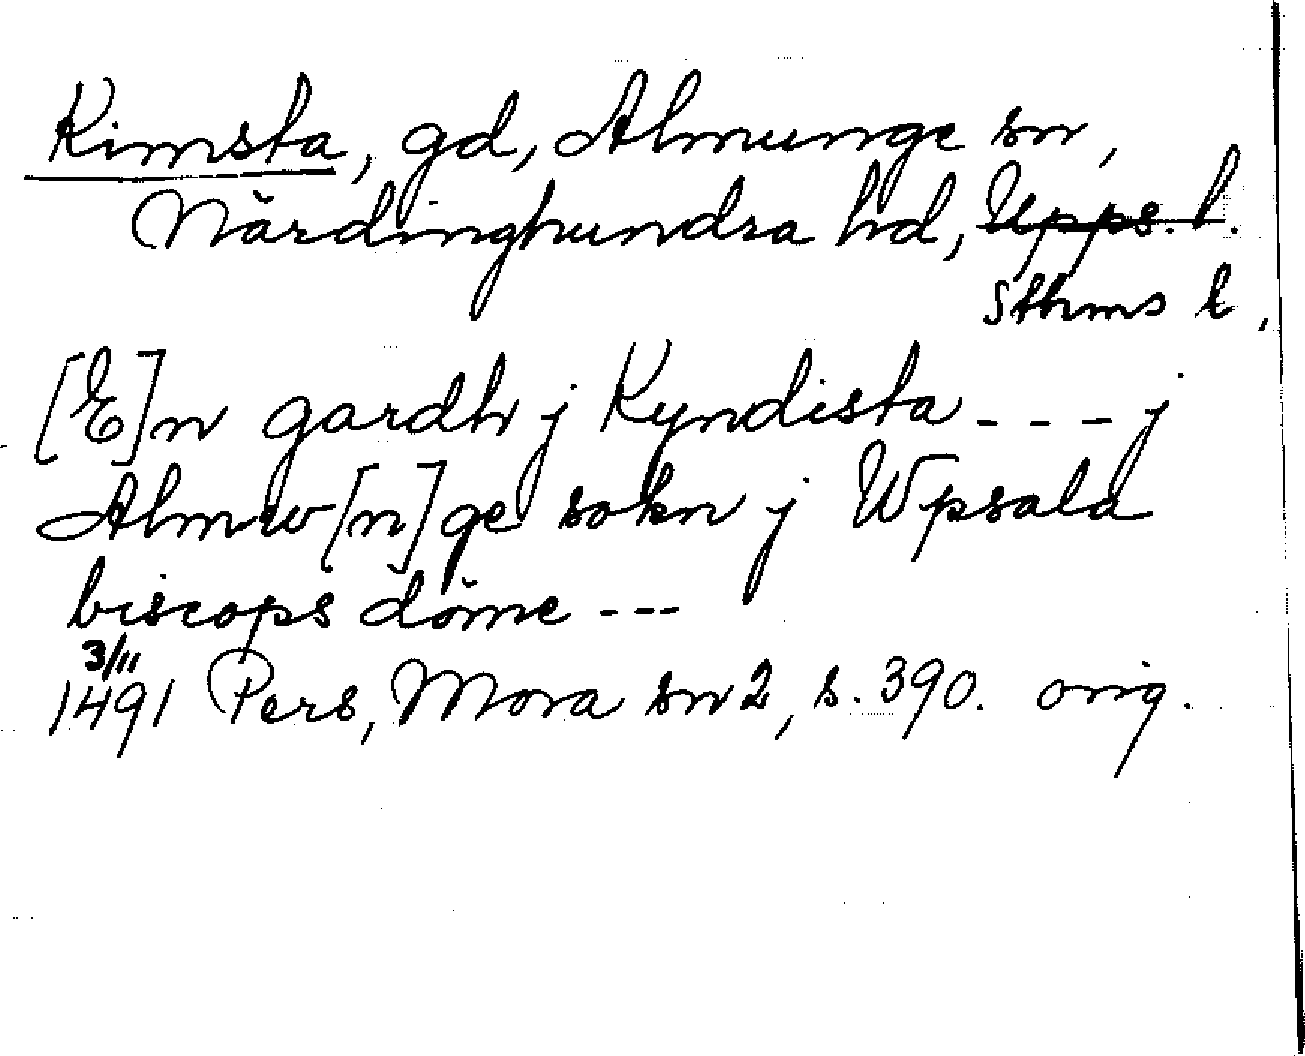 Kimsta, gd, Almunge sn,
Närdinghundra hd, Upps. l.
Sthms l,
[E]n gardh j Kyndista - - - j
Almw[n]ge sokn j Wpsala
biscops döme - - -
3/11
1491 Pers, Mora sn 2, s. 390. orig.